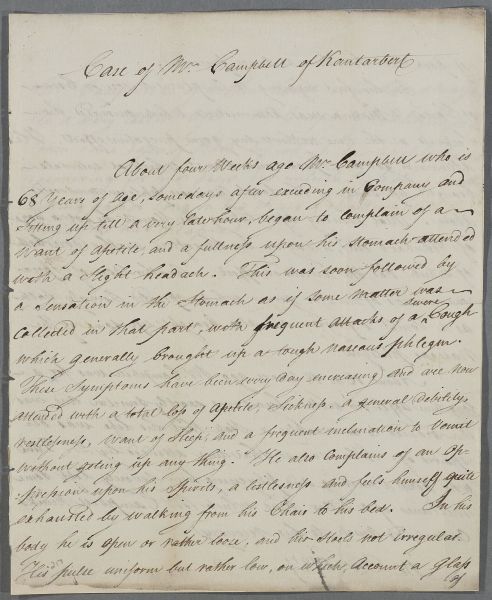 Case of Mr Campbell of Kantarbert
About four Weeks ago Mr Campbell who is
68 Years of age, some days after exceeding in Company and
Sitting up till a very late hour, began to complain of a
Want of Apetite, and a fullness upon his Stomach attended
with a Slight headach. This was soon followed by
a Sensation in the Stomach as if some matter was
Collected in that part, with frequent attacks of a severe Cough
which generally brought up a tough Naseous phlegm.
These Symptoms have been every day increasing and are now
attended with a total loss of Apetite, Sickness, a general debility,
restlessness, Want of Sleep, and a frequent inclination to Vomit
without getting up any thing. He also Complains of an Op-
pression upon his Spirits, a lestlessness and feels himself quite
exhausted by walking from his Chair to his bed. In his
body he is open or rather loose, and his Stools not irregular.
His pulse uniform but rather low, on which Account a Glass
of